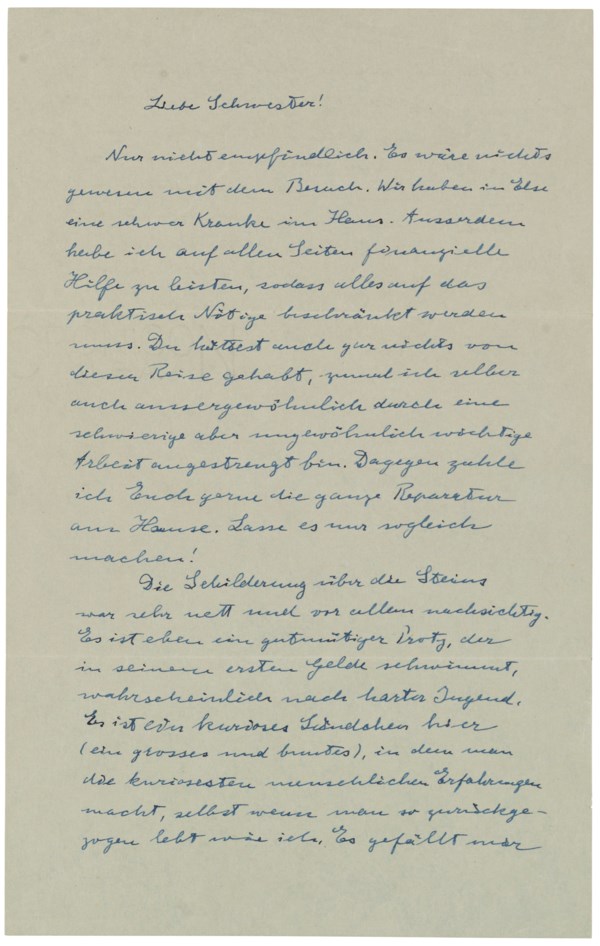 Liebe Schwester!
Nur nicht empfindlich. Es wäre nichts
gewesen mit dem Besuch. Wir haben in Else
eine schwer Kranke im Haus. Ausserdem
habe ich auf allen Seiten finanzielle
Hilfe zu leisten, sodass alles auf das
praktisch Nötige beschränkt werden
muss. Du hättest auch gar nichts von
dieser Reise gehabt, zumal ich selber
auch aussergewöhnlich durch eine
schwierige aber ungewöhnlich wichtige
Arbeit angestrengt bin. Dagegen zahle
ich Euch gerne die ganze Reparatur
am Hause. Lasse es nur sogleich
machen!
Die Schilderung über die Steins
war sehr nett und vor allem nachsichtig.
Es ist eben ein gutmütiger Protz, der
in seinem ersten Gelde schwimmt,
wahrscheinlich nach harter Jugend.
Es ist ein kurioses Ländchen hier
(ein grosses und buntes), in dem man
die kuriosesten menschlichen Erfahrungen
macht, selbst wenn man so zurückge-
zogen lebt wie ich. Es gefällt mir